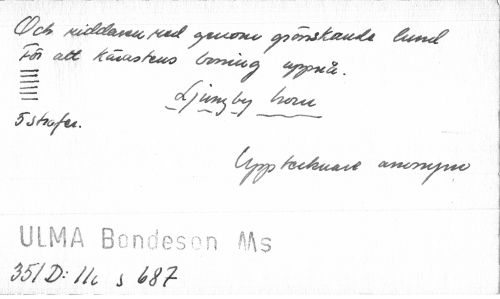 Och riddaren red genom grönskande lund
För att kärastens boning uppnå.
Ljungby horn
5 strofer.
Upptecknare anonym
ULMA Bondeson Ms
351 D: 11c s 687